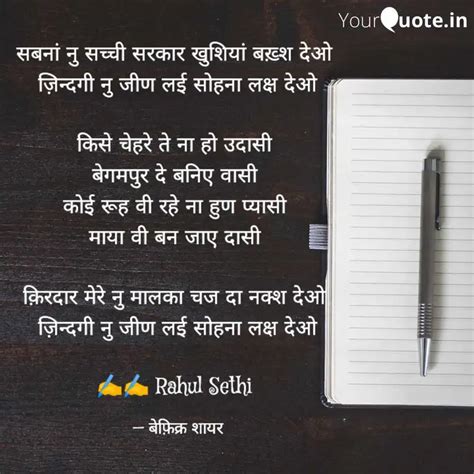 YourQuote.in
सबनां नु सच्ची सरकार खुशियां बख़्श देओ
ज़िन्दगी नु जीण लई सोहना लक्ष देओ
किसे चेहरे ते ना हो उदासी
बेगमपुर दे बनिए वासी
कोई रूह वी रहे ना हुण प्यासी
माया वी बन जाए दासी
क़िरदार मेरे नु मालका चज दा नक्श देओ
ज़िन्दगी नु जीण लई सोहना लक्ष देओ
✍️✍️ Rahul Sethi
— बेफ़िक्र शायर